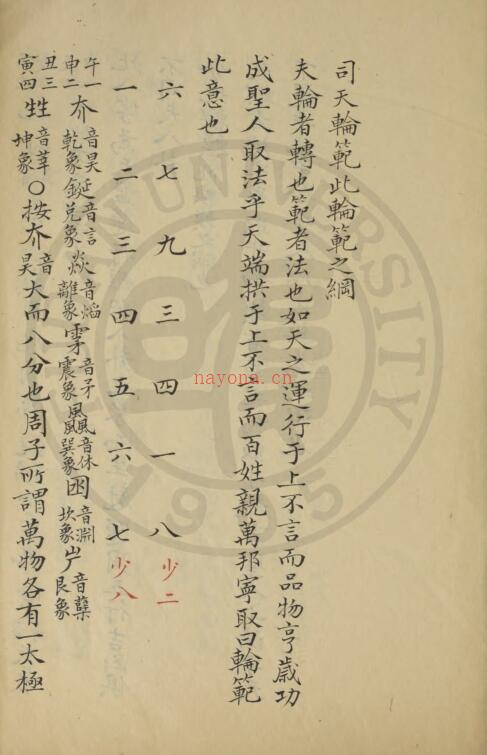 司天輪範此輪範之綱
夫輪者轉也範者法也如天之運行于上不言而品物亨歲功
成聖人取法乎天端拱于上不言而百姓親萬邦寧取曰輪範
此意也
六 七 九 三 四 一 八 少二
一 二 三 四 五 六 七 少八
午一 申二 夰 音昊 乾象 鋋 音言 兌象 焱 音焰 離象 雺 音矛 震象 飍 音休 巽象 囦 音淵 坎象 屵 音櫱 艮象
丑三 寅四 甡 音莘 坤象 ○按夰 音昊 大而八分也周子所謂萬物各有一太極
nayona.cn
UNIVERSITY
1905